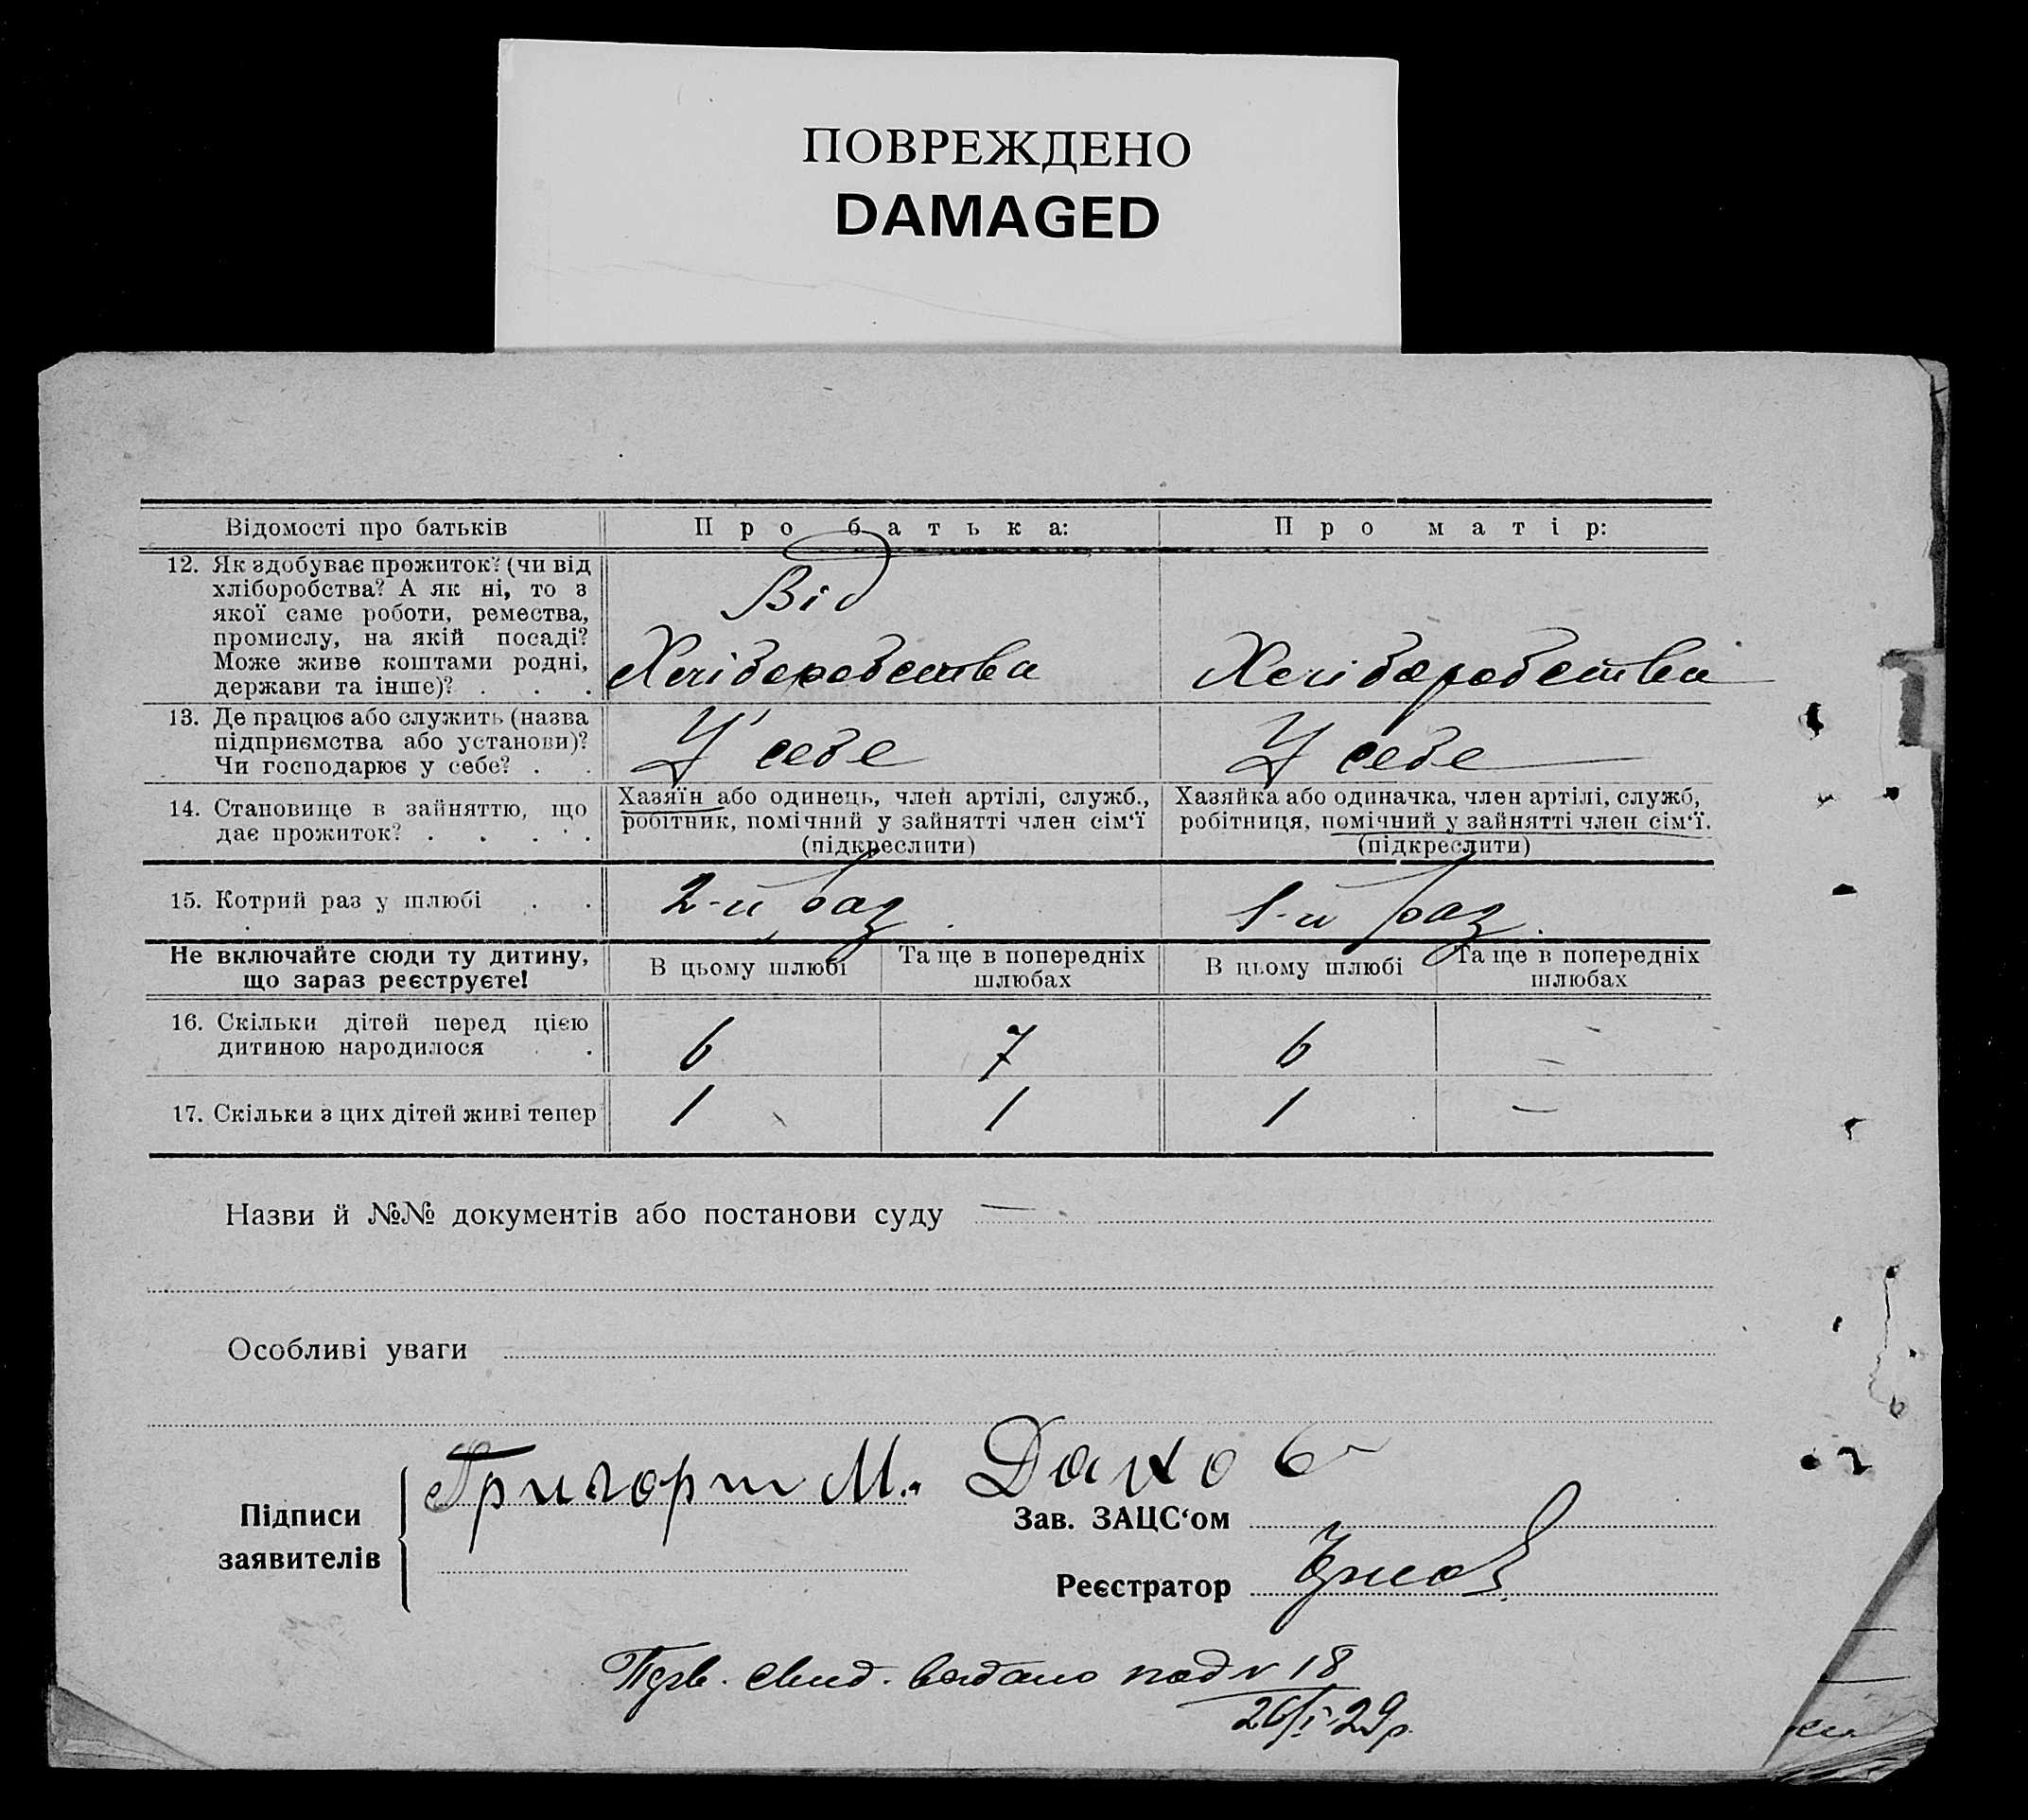 ПОВРЕЖДЕНО
DAMAGED
Відомості про батьків
Про батька:
Про матір:
12. Як здобуває прожиток? (чи від
хліборобства? А як ні, то з
якої саме роботи, ремества,
промислу, на якій посаді?
Може живе коштами родні,
держави та інше)? . . .
Від
Хліборобства
Хліборобства
13. Де працює або служить (назва
підприємства або установи)?
Чи господарює у себе? . .
У себе
У себе
14. Становище в зайняттю, що
дає прожиток? . . . .
Хазяїн або одинець, член артілі, служб.,
робітник, помічний у зайнятті член сім‘ї
(підкреслити)
Хазяйка або одиначка, член артілі, служб,
робітниця, помічний у зайнятті член сім‘ї.
(підкреслити)
15. Котрий раз у шлюбі . .
2-й раз
1-й раз.
Не включайте сюди ту дитину,
що зараз реєструєте!
В цьому шлюбі
Та ще в попередніх
шлюбах
В цьому шлюбі
Та ще в попередніх
шлюбах
16. Скільки дітей перед цією
дитиною народилося . .
6
7
6
–
17. Скільки з цих дітей живі тепер
1
1
1
–
Назви й №№ документів або постанови суду —
Особливі уваги
Підписи
заявителів
Григорий М. Дахов
Зав. ЗАЦС‘ом
Реєстратор
свид. видано под № 18
26/I-29р.